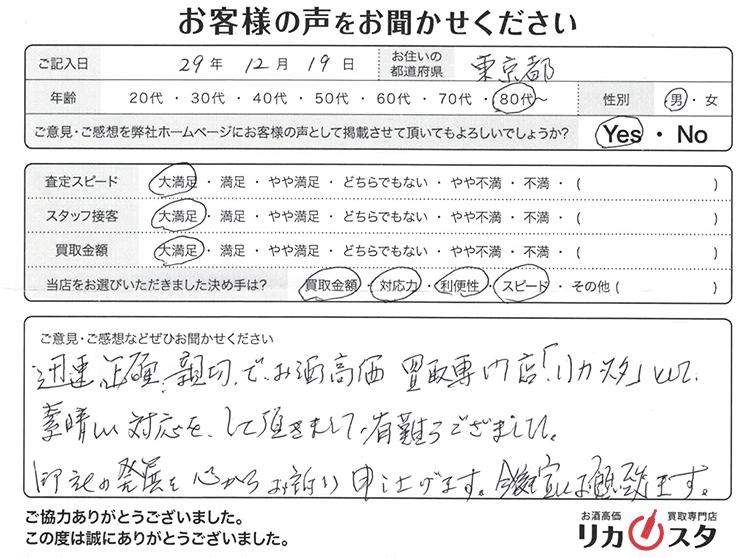 お客様の声をお聞かせください
ご記入日 29年 12月 19日 お住いの都道府県 東京都
年齢 20代・30代・40代・50代・60代・70代・80代～ 性別 男・女
ご意見・ご感想を弊社ホームページにお客様の声として掲載させて頂いてもよろしいでしょうか? Yes・No
査定スピード 大満足・満足・やや満足・どちらでもない・やや不満・不満・( )
スタッフ接客 大満足・満足・やや満足・どちらでもない・やや不満・不満・( )
買取金額 大満足・満足・やや満足・どちらでもない・やや不満・不満・( )
当店をお選びいただきました決め手は? 買取金額・対応力・利便性・スピード・その他( )
ご意見・ご感想などぜひお聞かせください
迅速、正確、親切、で、お酒高価 買取専門店「リカスタ」として、
素晴しい対応を、して頂きまして、有難うございました。
御社の発展を心からお祈り申上げます。今後共宜しくお願い致します。
ご協力ありがとうございました。
この度は誠にありがとうございました。
お酒高価 買取専門店
リカスタ